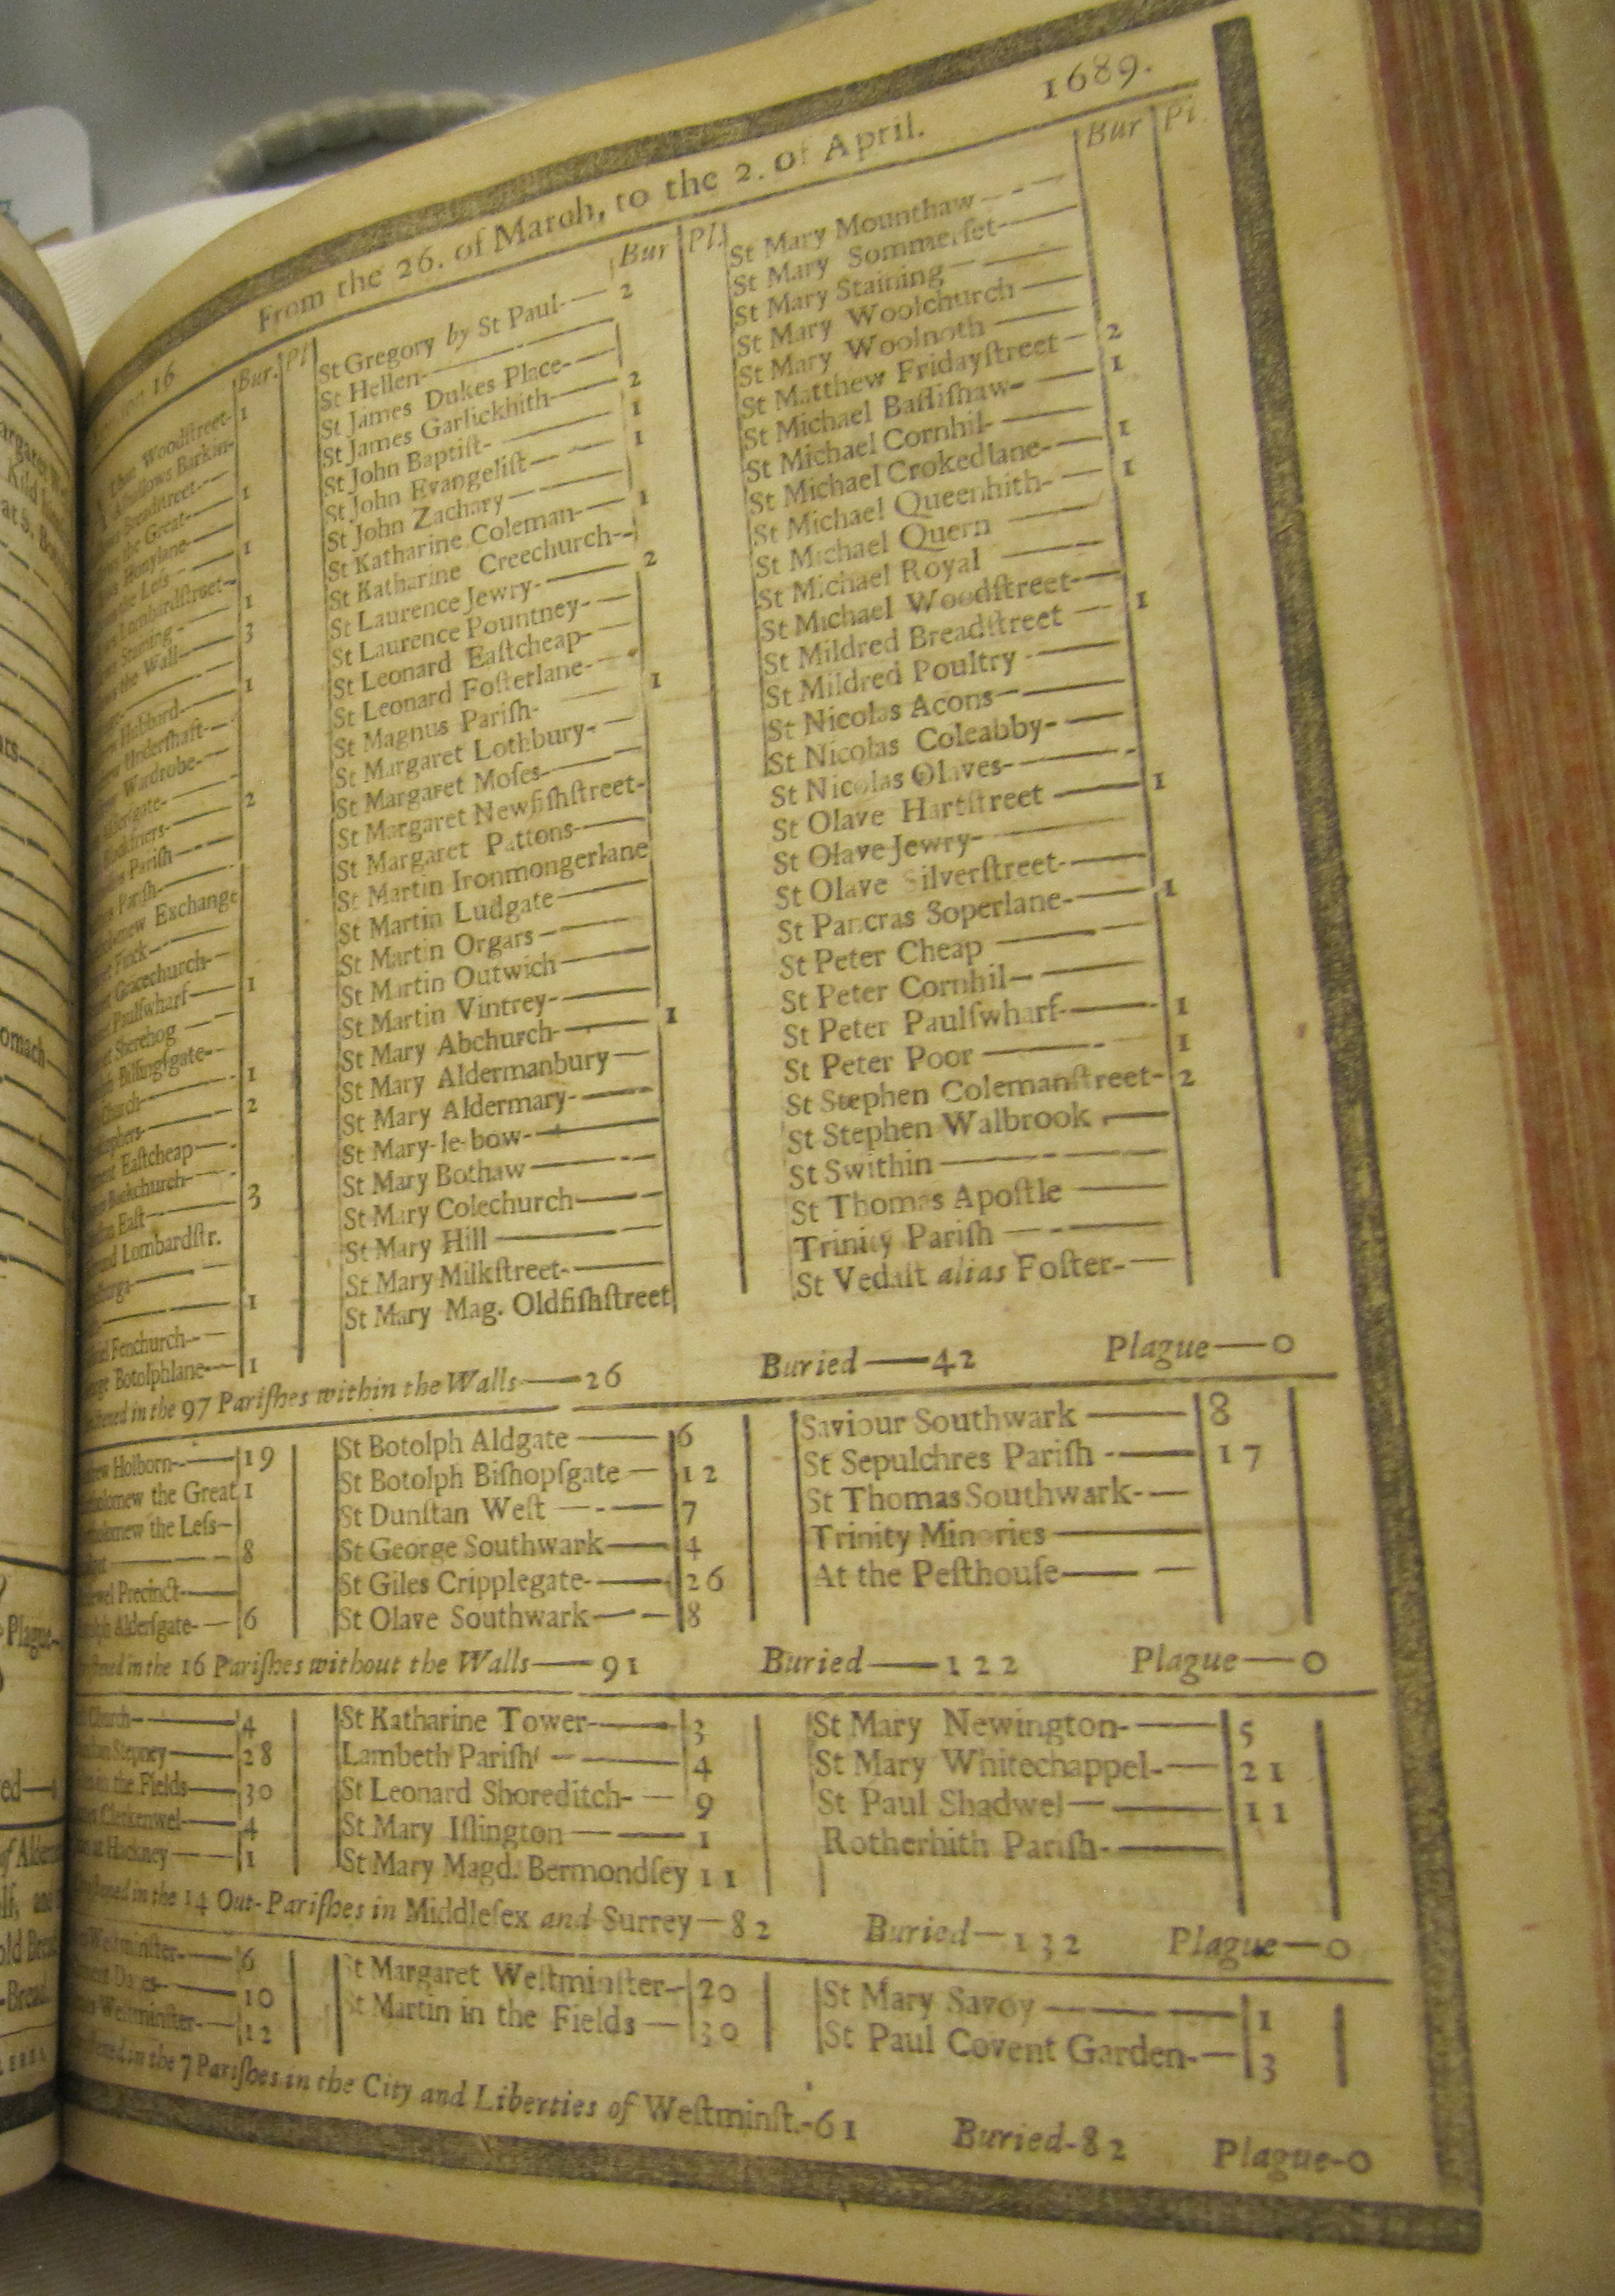 From the 26. of March, to the 2. of April. 1689.
Bur. Pl
Woodstreet- 1
Barkin-
Breadstreet--
the Great- 1
Honylane-
the Less 1
Lombardstreet-
Staining- 1
the Wall- 3
Hubbard- 1
Undershaft-
Wardrobe-
2
Parish
Parish-
Exchange
Finck-
Gracechurch-
Paulswharf 1
Sherehog
Billingsgate-
Church- 1
2
Eastcheap
Backchurch-
East 3
Lombardstr.
1
Fenchurch--
Botolphlane- 1
Bur Pl.
St Gregory by St Paul- 2
St Hellen-
St James Dukes Place-
St James Garlickhith- 2
St John Baptist- 1
St John Evangelist 1
St John Zachary
St Katharine Coleman- 1
St Katharine Creechurch-
St Laurence Jewry- 2
St Laurence Pountney-
St Leonard Eastcheap-
St Leonard Fosterlane-
St Magnus Parish- 1
St Margaret Lothbury-
St Margaret Moses-
St Margaret Newfishstreet-
St Margaret Pattons-
St Martin Ironmongerlane
St Martin Ludgate
St Martin Orgars
St Martin Outwich
St Martin Vintrey-
St Mary Abchurch- 1
St Mary Aldermanbury
St Mary Aldermary-
St Mary-le-bow-
St Mary Bothaw
St Mary Colechurch
St Mary Hill
St Mary Milkstreet-
St Mary Mag. Oldfishstreet
Bur Pl.
St Mary Mounthaw
St Mary Sommerset
St Mary Staining
St Mary Woolchurch
St Mary Woolnoth
St Matthew Fridaystreet 2
St Michael Bassishaw- 1
St Michael Cornhil-
St Michael Crokedlane- 1
St Michael Queenhith- 1
St Michael Quern
St Michael Royal
St Michael Woodstreet-
St Mildred Breadstreet 1
St Mildred Poultry
St Nicolas Acons
St Nicolas Coleabby-
St Nicolas Olaves-
St Olave Hartstreet 1
St Olave Jewry-
St Olave Silverstreet-
St Pancras Soperlane- 1
St Peter Cheap
St Peter Cornhil
St Peter Paulswharf 1
St Peter Poor 1
St Stephen Colemanstreet- 2
St Stephen Walbrook
St Swithin
St Thomas Apostle
Trinity Parish
St Vedast alias Foster-
in the 97 Parishes within the Walls—26 Buried—42 Plague—0
Holborn— 19
the Great 1
the Less
8
Precinct
Aldersgate- 6
St Botolph Aldgate 6
St Botolph Bishopsgate 12
St Dunstan West 7
St George Southwark 4
St Giles Cripplegate- 26
St Olave Southwark 8
Saviour Southwark 8
St Sepulchres Parish 17
St Thomas Southwark-
Trinity Minories
At the Pesthouse
in the 16 Parishes without the Walls—91 Buried—122 Plague—0
Church 4
Stepney 28
in the Fields 30
Clerkenwel 4
at Hackney 1
St Katharine Tower 3
Lambeth Parish 4
St Leonard Shoreditch- 9
St Mary Islington 1
St Mary Magd. Bermondsey 11
St Mary Newington- 5
St Mary Whitechappel- 21
St Paul Shadwel 11
Rotherhith Parish-
in the 14 Out-Parishes in Middlesex and Surrey—82 Buried—132 Plague—0
Westminster- 6
10
Westminster- 12
St Margaret Westminster- 20
St Martin in the Fields 30
St Mary Savoy 1
St Paul Covent Garden- 3
in the 7 Parishes in the City and Liberties of Westminst.-61 Buried-82 Plague-0